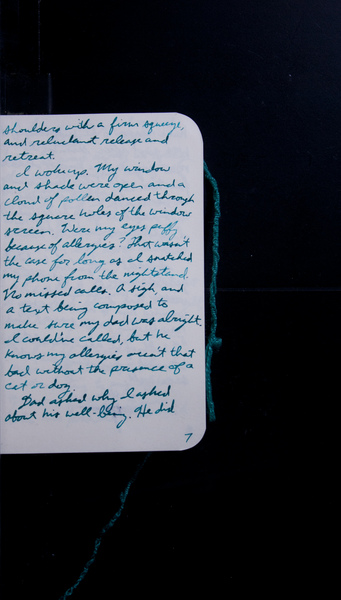 shoulders with a firm squeeze,
and reluctant release and
retreat.
I woke up. My window
and shade were open and a
cloud of pollen danced through
the square holes of the window
screen. Were my eyes puffy
because of allergies? That wasn't
the case for long as I snatched
my phone from the nightstand.
No missed calls. A sigh, and
a text being composed to
make sure my dad was alright.
I could've called, but he
knows my allergies aren't that
bad without the presence of a
cat or dog.
Dad asked why I asked
about his well-being. He did
7